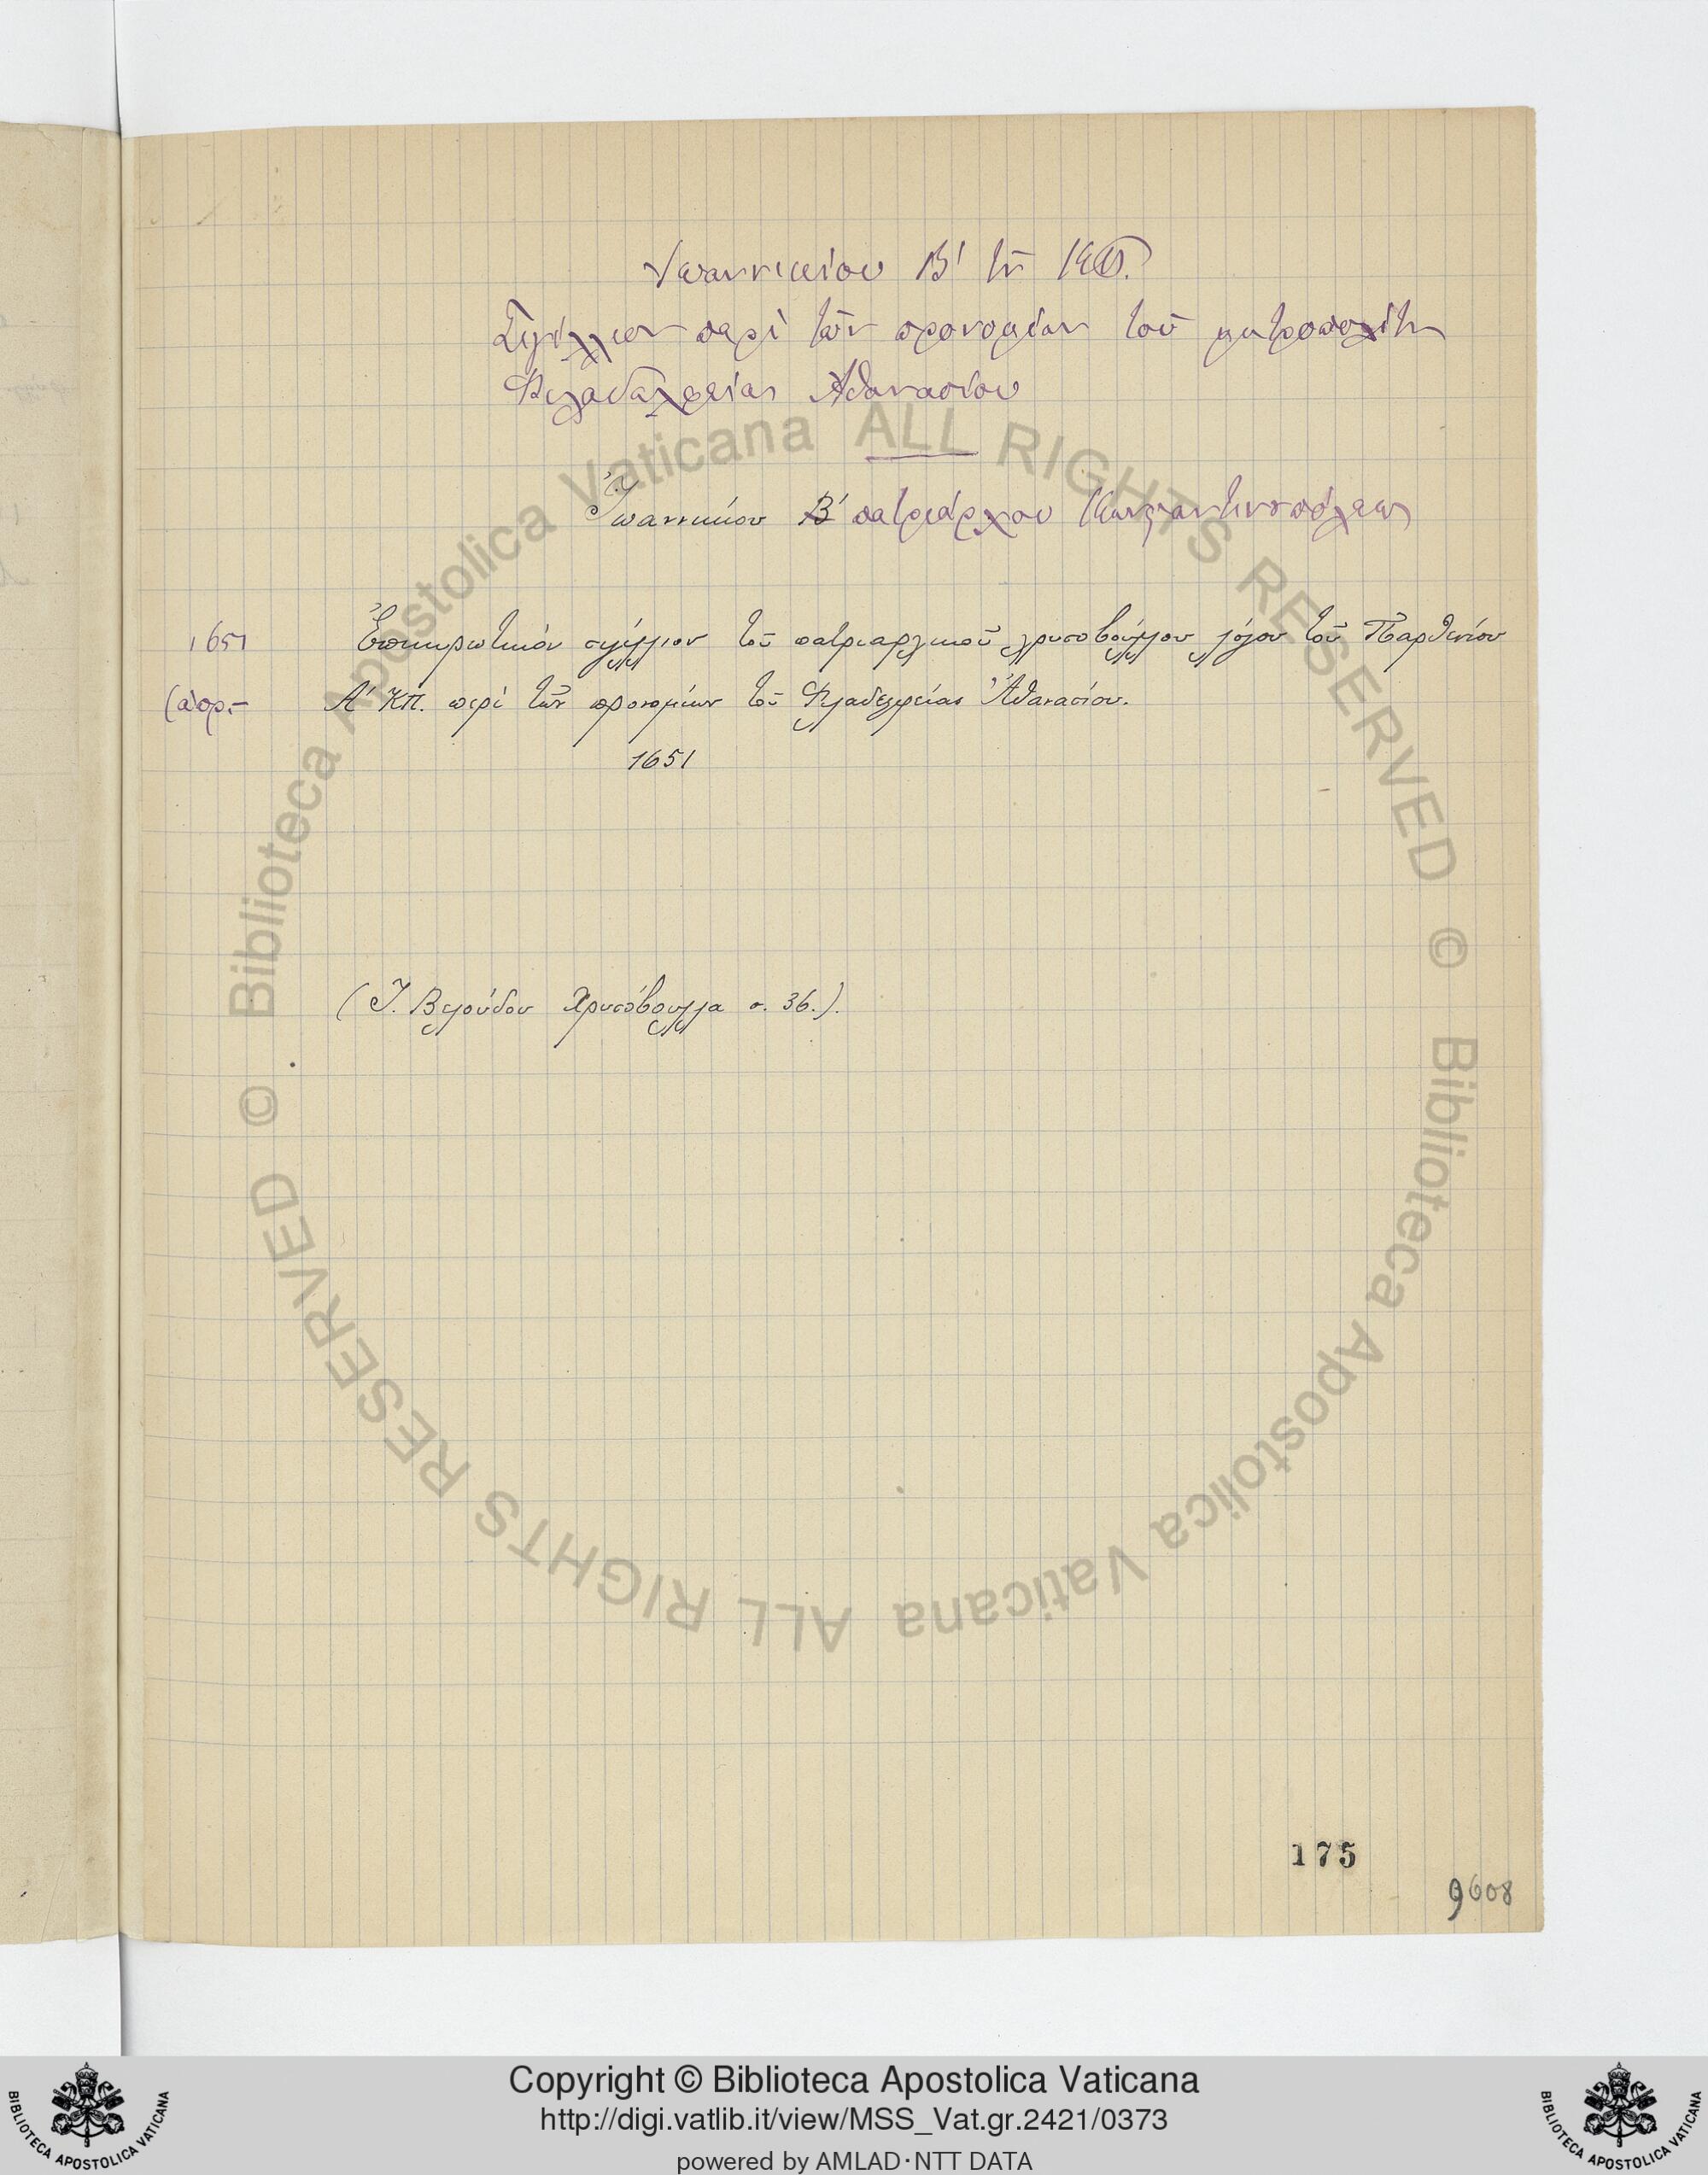 Ἰωαννικίου Β' τοῦ ΚΠ.
Σιγίλλιον περὶ τῶν προνομίων τοῦ μητροπολίτου
Φιλαδελφείας Ἀθανασίου
Ἰωαννικίου Β' πατριάρχου Κωνσταντινουπόλεως
1651 Ἐπικυρωτικόν σιγίλλιον τοῦ πατριαρχικοῦ χρυσοβούλλου λόγου τοῦ Παρθενίου
Α' ΚΠ. περί τῶν προνομίων τοῦ Φιλαδελφείας Ἀθανασίου.
1651
(Ἰ. Βελούδου Χρυσόβουλλα σ. 36.).
175
9608
© Biblioteca Apostolica Vaticana ALL RIGHTS RESERVED
© Biblioteca Apostolica Vaticana ALL RIGHTS RESERVED
Copyright © Biblioteca Apostolica Vaticana
http://digi.vatlib.it/view/MSS_Vat.gr.2421/0373
powered by AMLAD·NTT DATA
BIBLIOTECA APOSTOLICA VATICANA
BIBLIOTECA APOSTOLICA VATICANA